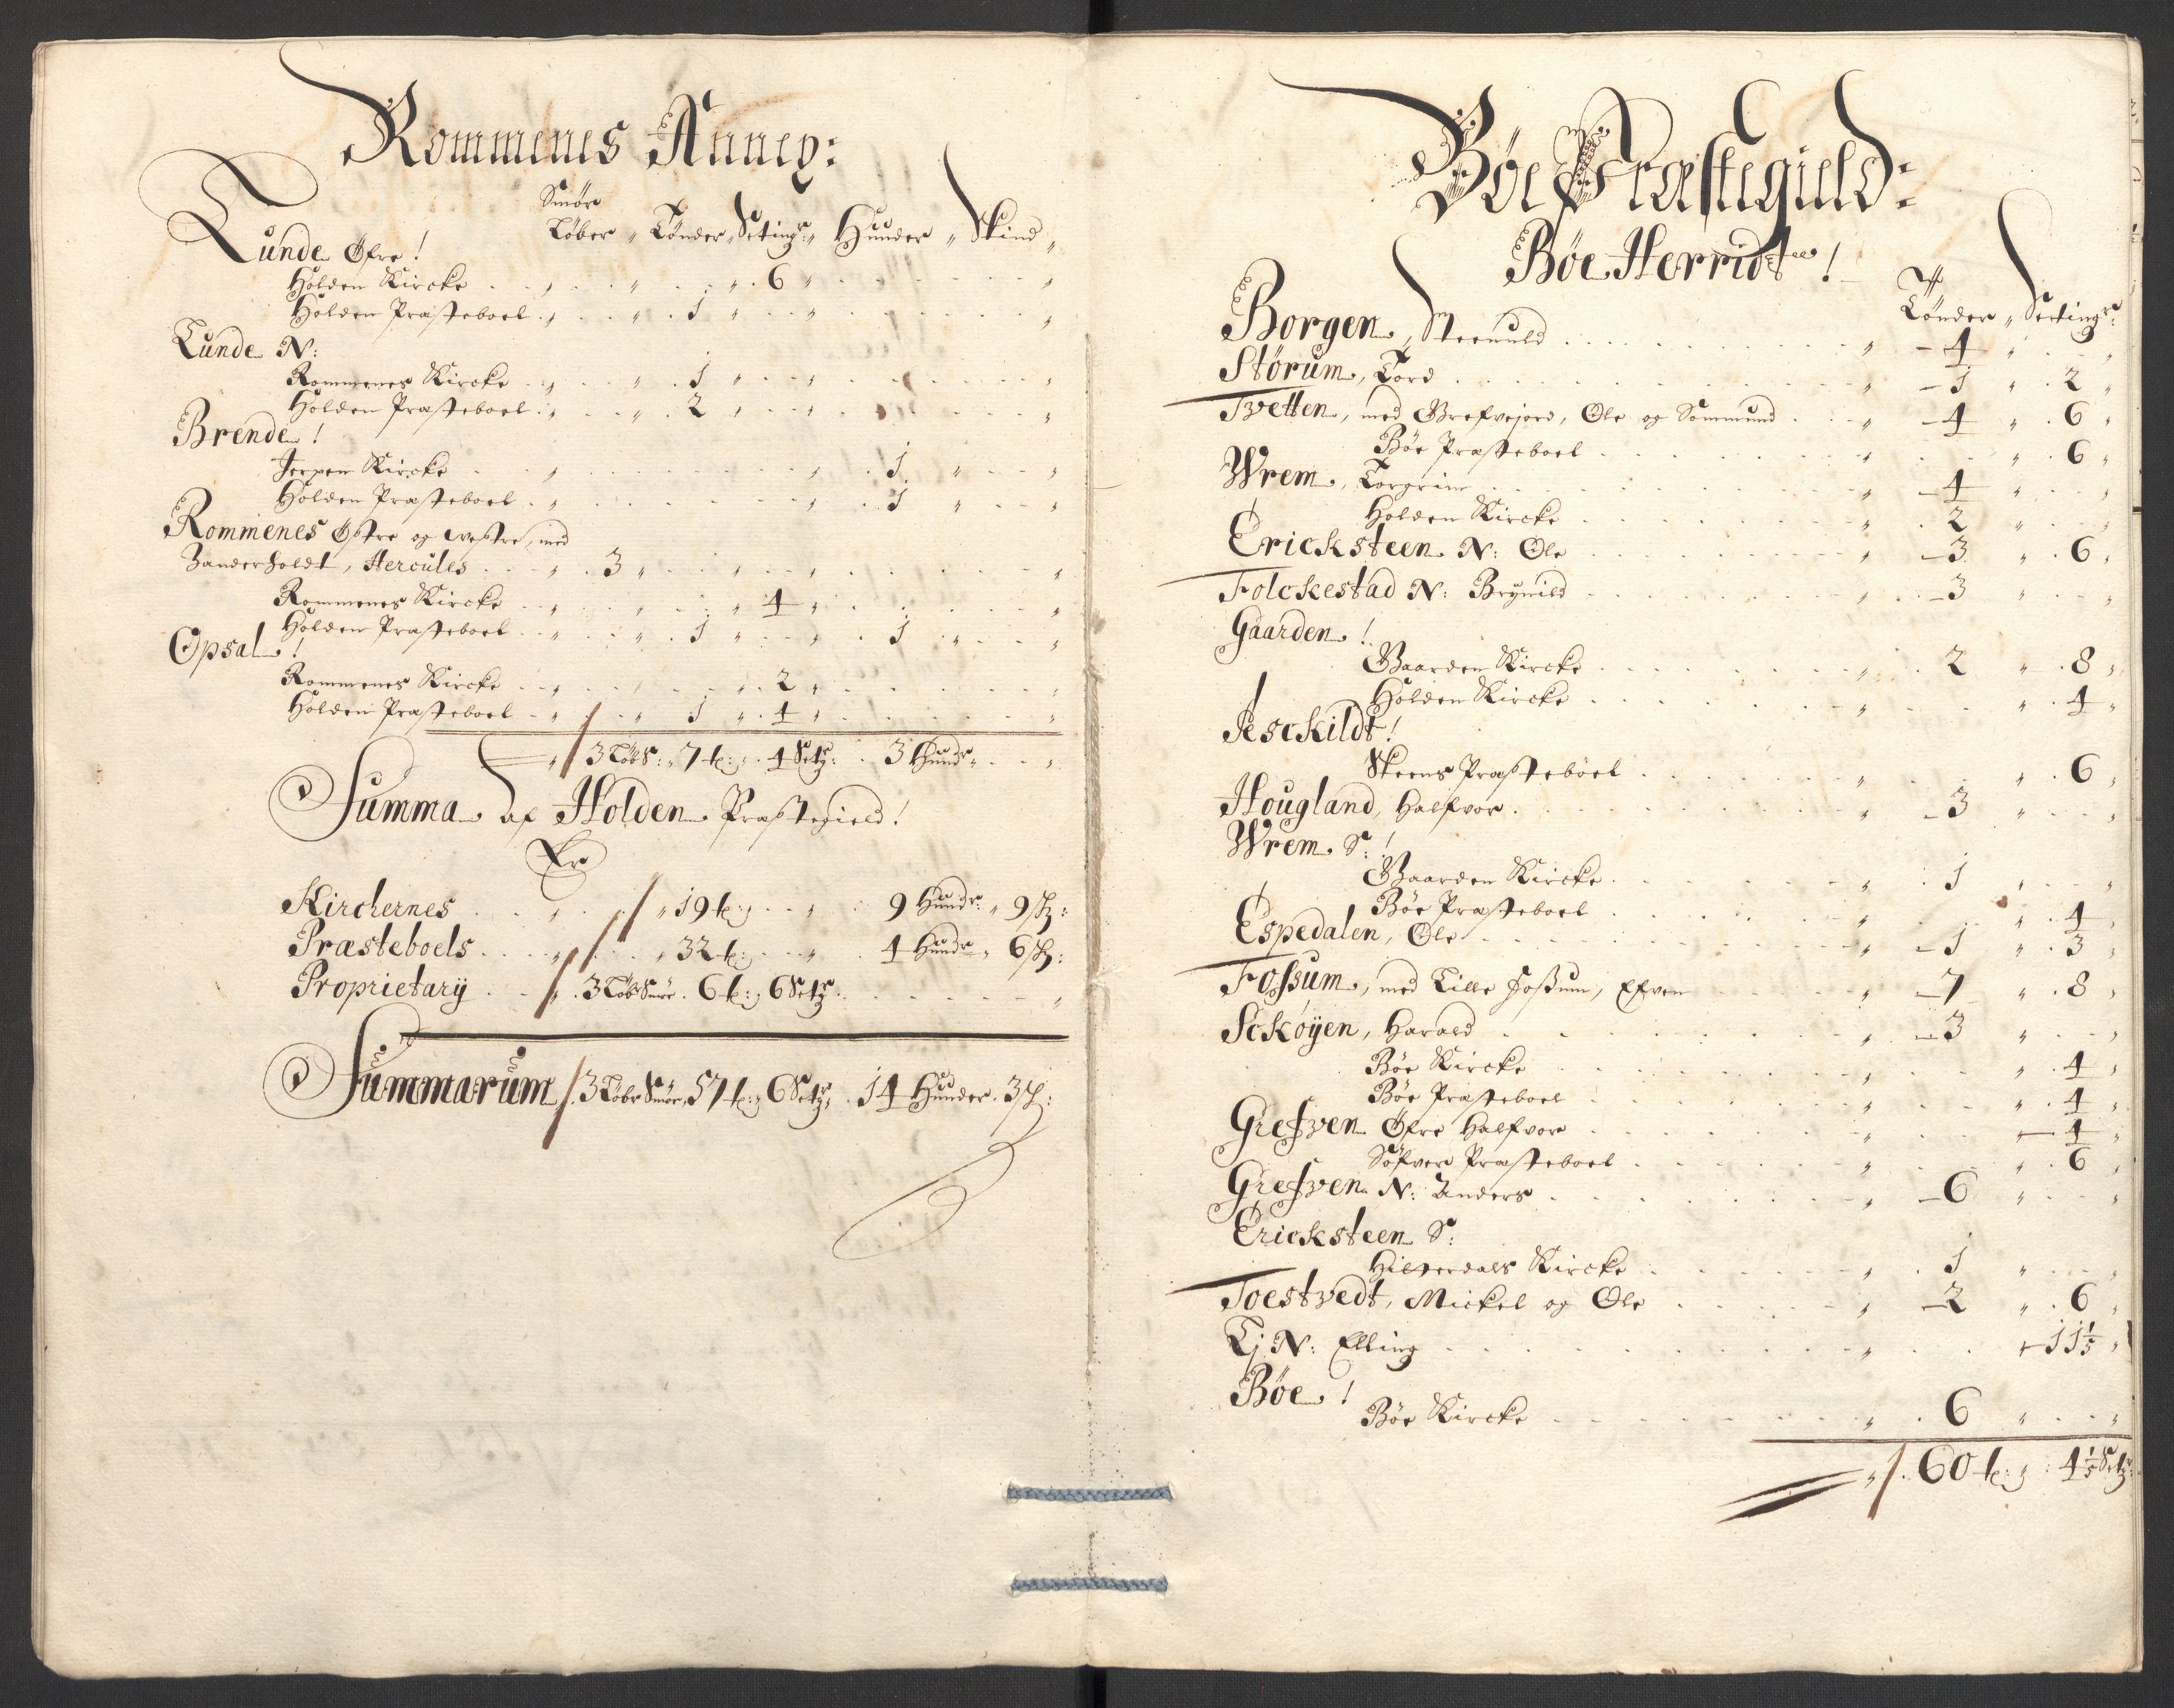 Rommenes Annex:
Smör
Löber " Tönder " Setingr " Hunder " Skind "
Lunde Öfre!
Holden Kircke . . " . . " . . " . 6 " . . "
Holden Præsteboel . " . . " . 1 " . . " . . "
Lunde N:
Rommenes Kircke . . " . . " . 1 " . . " . . "
Holden Præsteboel . " . . " . 2 " . . " . . "
Brenden!
Jerpen Kircke . . " . . " . 1 " . . "
Holden Præsteboel . " . . " . 1 " . . "
Rommenes Östre og Westre, med
Zanderholdt, Hercules . . " . 3 " . . " . . "
Rommenes Kircke . . " . . " 4 " . . "
Holden Præsteboel . . " . . " . 1 " . . " . 1 " . . "
Opsal!
Rommenes Kircke . . " . . " . 2 " . . "
Holden Præsteboel . . " . . " 1 " . 4 " . . "
" 3 Löb S: " 7 t: " 4 Setg: . 3 Hundr " . . "
Summa af Holden Præstegield!
Er
Kirchernes . . " . . " 19 t: . . " . 9 Hundr: " 9 sk:
Præsteboels . . " . . " 32 t: . . " . 4 Hundr " 6 sk:
Proprietarÿ . . " . 3 Löb Smör . 6 t: 6 Setg . . "
Summarum 3 Löbr Smör, 57 t: 6 Setg: . 14 Hunder . 3 sk:
Böe Præstegield:
Böe Herridt!
Tönder " Settingr:
Borgen, Steenuld . . " - 4 " . . "
Störum, Tord . . " - 1 " . 2 "
Tvetten, med Grefvejord, Ole og Sommund . . " - 4 " . 6 "
Böe Præsteboel . . " . . " . 6 "
Wrem, Torgrim . . " - 4 " . . "
Holden Kircke . . " . 2 " . . "
Ericksteen N: Ole . . " - 3 " . 6 "
Folckestad N: Brynild . . " - 3 " . . "
Gaarden!
Gaarden Kircke . . " . 2 " . 8 "
Holden Kircke . . " . . " . 4 "
Jesckildt!
Skeens Præsteboel . . " . . " . 6 "
Hougland, Halfvor . . " - 3 " . . "
Wrem S:!
Gaarden Kircke . . " . 1 " . . "
Böe Præsteboel . . " . . " . 4 "
Espedalen, Ole . . " - 1 " . 3 "
Fossum, med Lille Fossum, Efven . . " - 7 " . 8 "
Sckoÿen, Harald . . " - 3 " . . "
Böe Kircke . . " . . " . 4 "
Böe Præsteboel . . " . . " . 4 "
Grefven Öfre Halfvor . . " . . " - 4 "
Söfver Præsteboel . . " . . " . 6 "
Grefven N: Anders . . " - 6 " . . "
Ericksteen S:
Hitterdals Kircke . . " . 1 " . . "
Toestvedt, Mickel og Ole . . " - 2 " . 6 "
Lj N: Elling . . " . . " - 11 1/5 "
Böe!
Böe Kircke . . " . 6 " . . "
" . 60 t: " . 4 1/5 Setg: